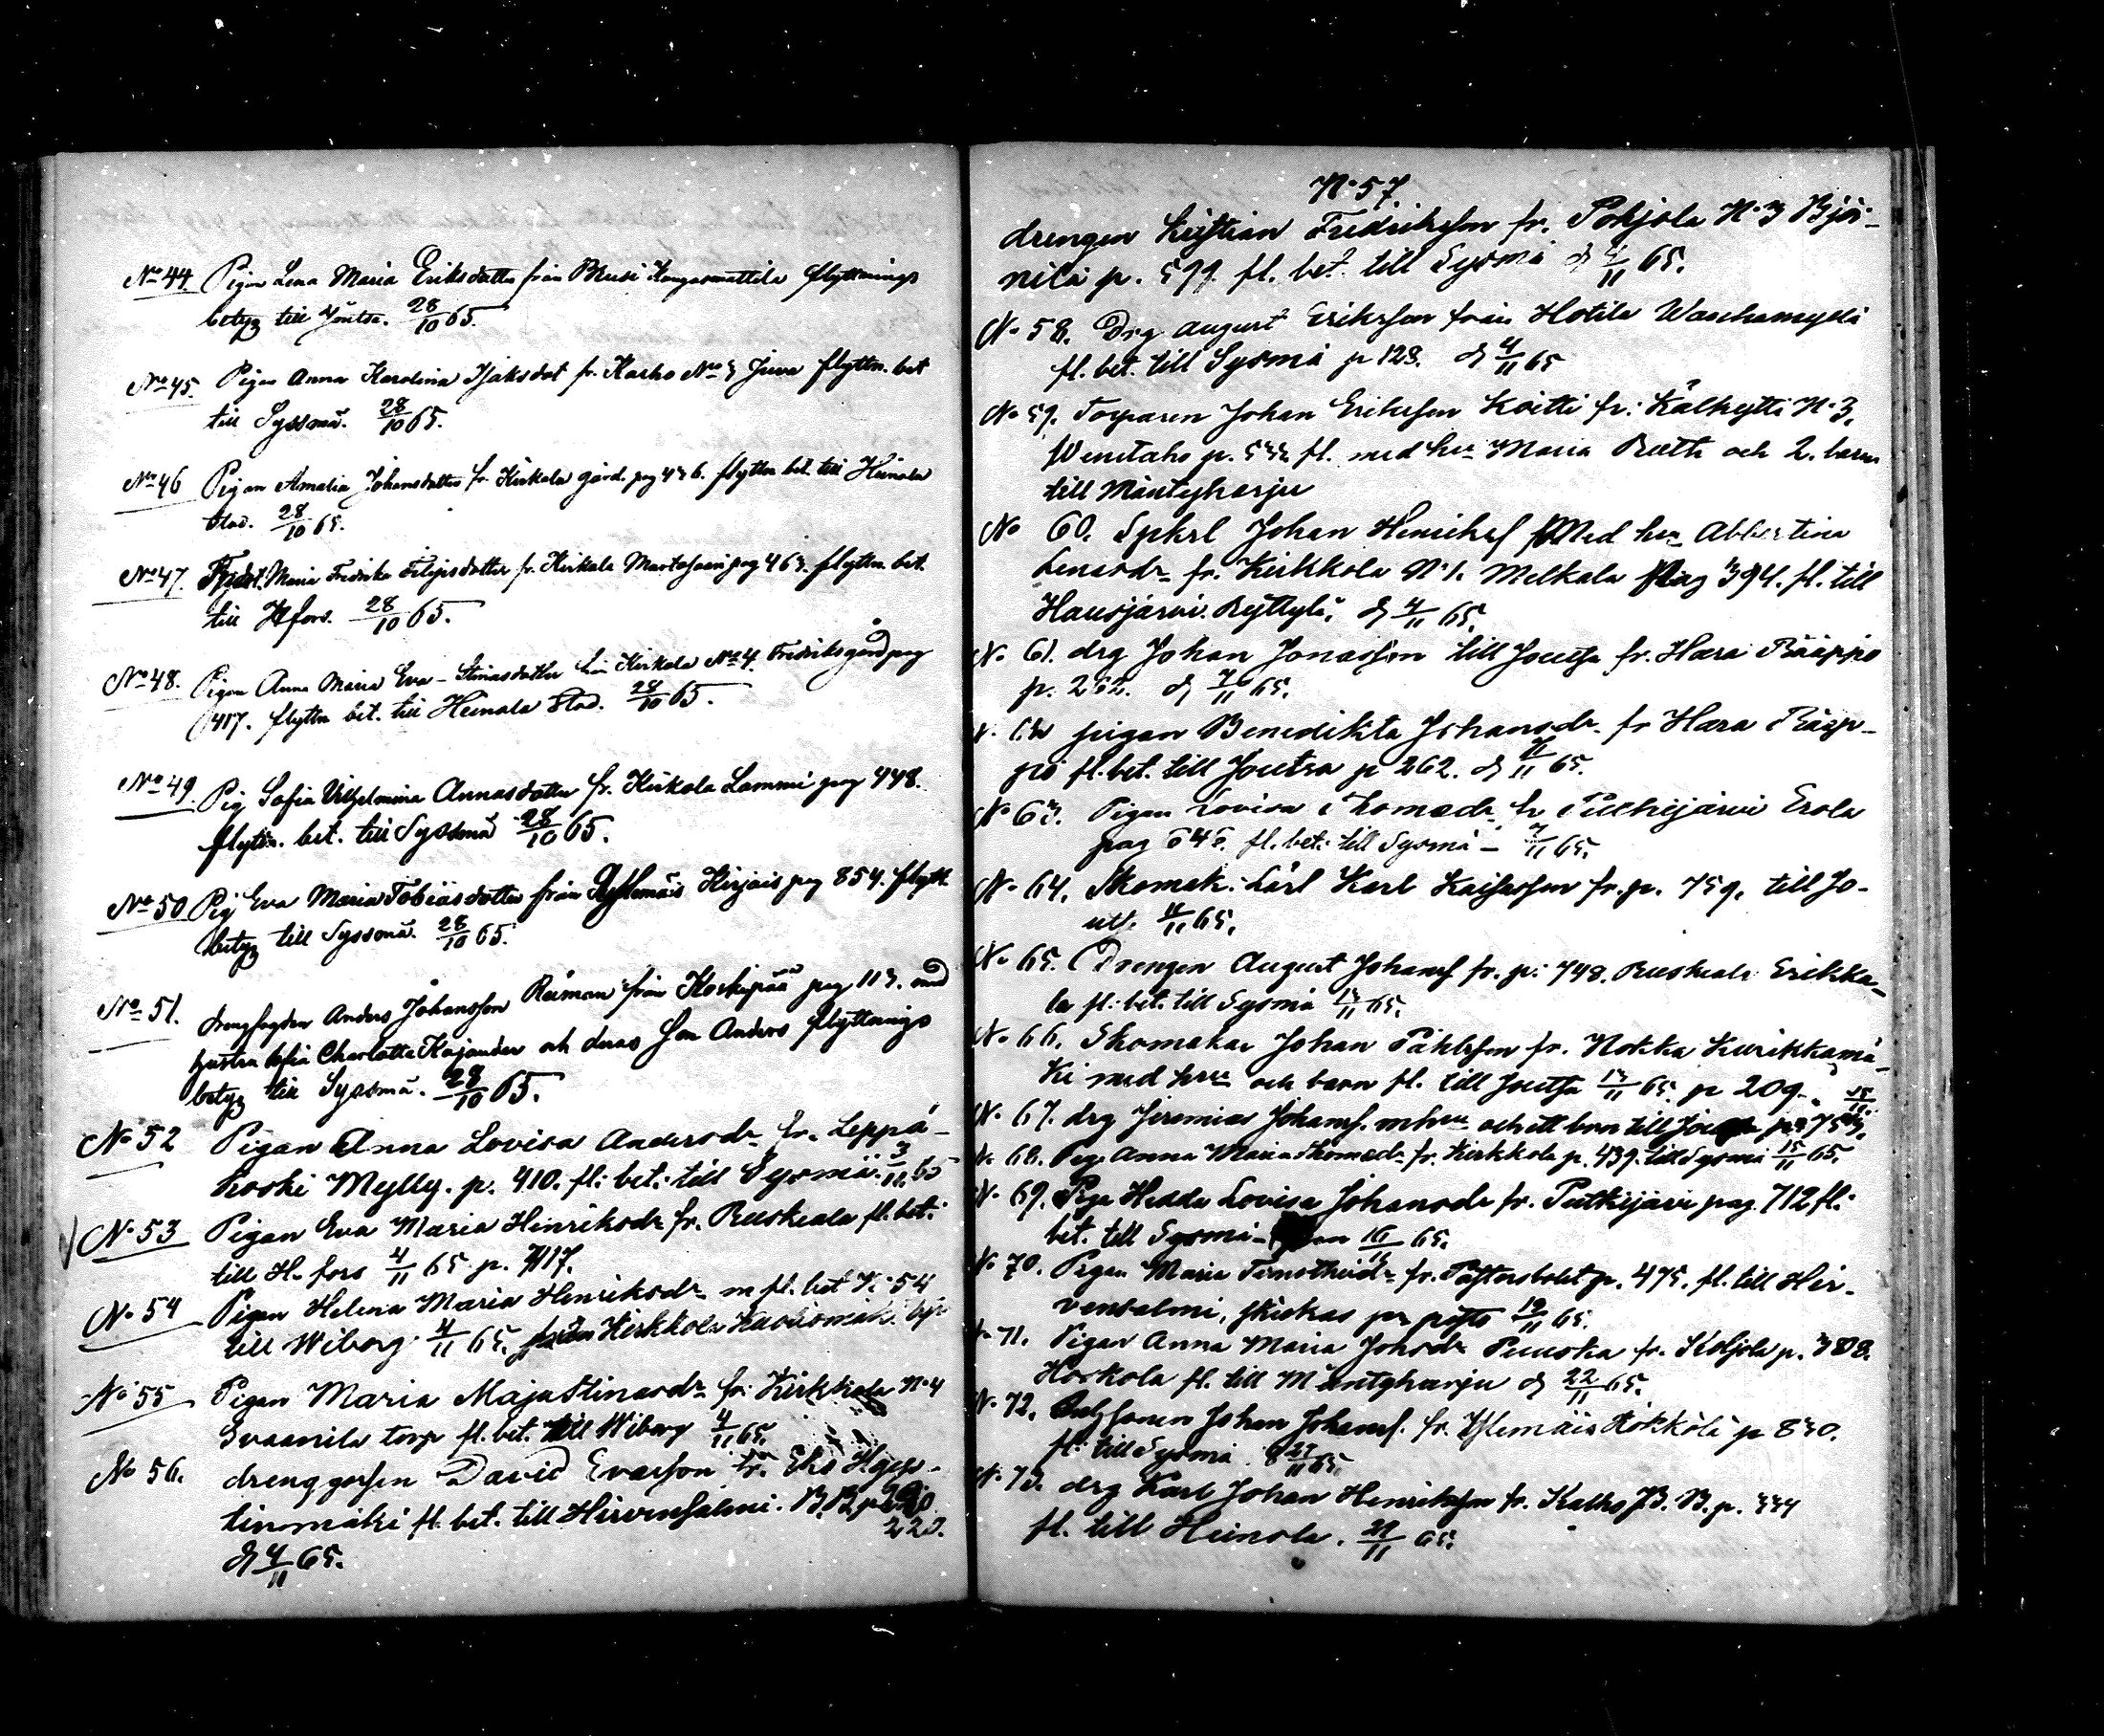 No 44 Pigan Lena Maria Eriksdotter från Rusi Kangasmattila flyttnings
betyg till Joutsa. 28/10 65.
No 45. Pigan Anna Karolina Isaksdot fr. Karho No 5 Juva flyttn. bet
till Syssmä. 28/10 65.
No 46 Pigan Amalia Johansdotter fr. Kirkola gård. pag 456. flyttn bet. till Heinola
Stad. 28/10 65.
No 47. Maria Fredrika Filipsdotter fr. Kirkola pag 465. flyttn. bet.
till Hfors. 28/10 65.
No 48. Pigan Anna Maria Eva-Stinasdotter från Kirkola No 4. Fredriksgård pag
417. flyttn bet. till Heinola Stad. 28/10 65.
No 49. Pig Sofia Vilhelmina Annasdotter fr. Kirkola Lammi pag 448.
flyttn. bet. till Syssmä 28/10 65.
No 50 Pig Eva Maria Tobiasdotter från Kirjais pag 854. flyttn
betyg till Syssmä. 28/10 65.
No 51. drengfogden Anders Johansson Reiman från Koskipää pag 115. med
hustru Sofia Charlotta Kajander och deras Son Anders flyttnings
betyg till Syssmä. 28/10 65.
No 52 Pigan Anna Lovisa Andersdr fr. Leppä-
koski Mylly. p. 410. fl. bet. till Sysmä. 3/11 65
No 53 Pigan Eva Maria Hinriksdr fr. Ruskeala fl. bet.
till H. fors 4/11 65 p. 717.
No 54 Pigan Helena Maria Henriksdr m fl. bet N. 54
till Wiborg 4/11 65. från Kirkkola
No 55 Pigan Maria MajaStinasdr fr. Kirkkola N. 4
Svaanila torp fl. bet. till Wiborg 4/11 65.
No 56. drenggossen David Evasson fr. Eko Hyp-
tinmäki fl. bet. till Hirvensalmi. B.B. p
220.
d 4/11 65.
N. 57.
drengen Kristian Fredriksson fr. Pohjola N. 3 Björ-
nilä p. 599. fl. bet. till Sysmä d 4/11 65.
N. 58. Drg August Eriksson från Hotila Waskamylli
fl. bet. till Sysmä p 128. d 4/11 65
No 59. Torparen Johan Eriksson Koitti fr. Kälkytti N. 3.
p. 552 fl. med hu Maria Rutt och 2. barn
till Mäntyharju
No 60. Spkrl Johan Henrikss Med hu Albertina
Lenasdr fr. Kirkkola N. 1. Melkala pag 394. fl. till
Hausjärvi. Ryttylä. d 4/11 65.
N. 61. drg Johan Jonasson till Joutsa fr. Hara Rääppö
p. 262. d 7/11 65.
N. 62 pigan Benedikta Johansdr. fr Hara Rääp-
pö fl. bet. till Joutsa p 262. d 7/11 65.
No 63. Pigan Lovisa Thomasdr fr Pulkijärvi Erola
pag 645. fl. bet. till Sysmä - 7/11 65.
No 64. Skomak. Lärl Karl Kaisasson fr. p. 759. till Jo-
uts. 11/11 65.
N. 65. Drengen August Johanss fr. p. 748. Ruskeala Erikka-
la fl. bet. till Sysmä 13/11 65.
N. 66. Skomakar Johan Påhlsson fr. Nokka Kurikkamä-
ki med hru och barn fl. till Joutsa 13/11 65 p 209.
N. 67. drg Jeremias Johanss. m hru och ett barn till 15/11.
N. 68. Pig. Anna Maria Thomasdr fr. Kirkkola p. 439. till Sysmä 15/11 65.
N. 69. Piga Hedda Lovisa Johansdr fr. Putkijärvi pag. 712 fl.
bet. till Sysmä - 16/11 65.
N. 70. Pigan Maria Timotheidr fr. Pastorsbolet p. 475. fl. till Hir-
vensalmi, skickas pr posto 19/11 65.
N. 71. Pigan Anna Maria Johsdr Puuska fr. Koljola p. 388.
Horkola fl. till Mäntyharju d 22/11 65.
N. 72. Johan Johanss. fr. Ylemäis Hökkölä p 830.
fl. till Sysmä d 27/11 65.
N. 73. drg Karl Johan Henriksson fr. Kalho B. B. p. 554
fl. till Heinola. 29/11 65.